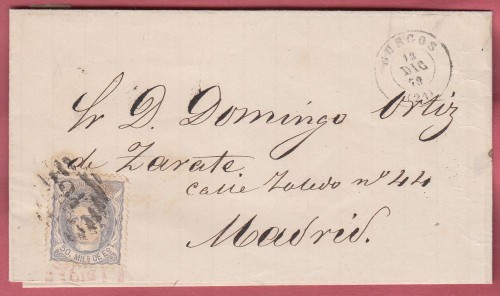 BURGOS
12
DIC
(21)
Sr D. Domingo Ortiz
de Zarate
calle Toledo nº 44
Madrid.
50 MILS DE ESº